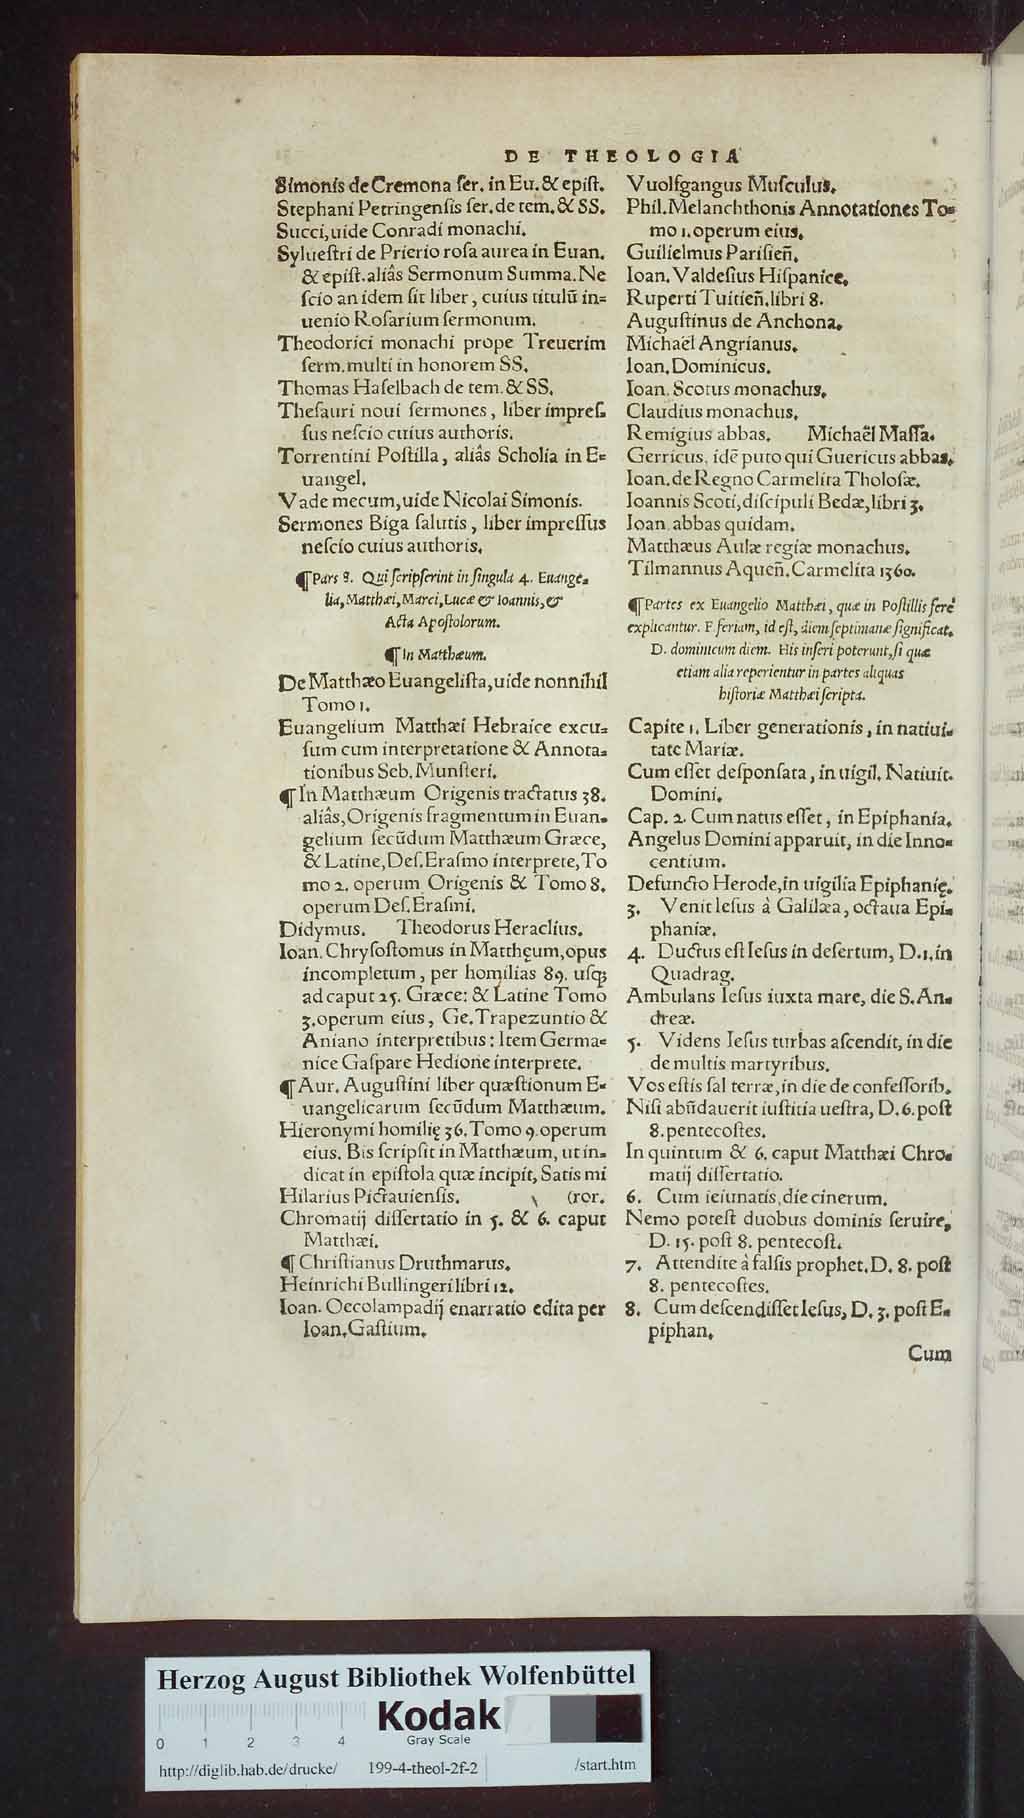 DE THEOLOGIA
Simonis de Cremona ser. in Eu. & epist.
Stephani Petringensis ser. de tem. & SS.
Succi, uide Conradi monachi.
Syluestri de Prierio rosa aurea in Euan.
& epist. aliâs Sermonum Summa. Ne
scio an idem sit liber, cuius titulū in=
uenio Rosarium sermonum.
Theodorici monachi prope Treuerim
serm. multi in honorem SS.
Thomas Haselbach de tem. & SS.
Thesauri noui sermones, liber impres=
sus nescio cuius authoris.
Torrentini Postilla, aliâs Scholia in E=
uangel.
Vade mecum, uide Nicolai Simonis.
Sermones Biga salutis, liber impressus
nescio cuius authoris.
¶ Pars 8. Qui scripserint in singula 4. Euange=
lia, Matthæi, Marci, Lucæ & Ioannis, &
Acta Apostolorum.
¶ In Matthæum.
De Matthæo Euangelista, uide nonnihil
Tomo 1.
Euangelium Matthæi Hebraice excu=
sum cum interpretatione & Annota=
tionibus Seb. Munsteri.
¶ In Matthæum Origenis tractatus 38.
aliâs, Origenis fragmentum in Euan=
gelium secūdum Matthæum Græce,
& Latine, Des. Erasmo interprete, To
mo 2. operum Origenis & Tomo 8.
operum Des. Erasmi.
Didymus. Theodorus Heraclius.
Ioan. Chrysostomus in Matthęum, opus
incompletum, per homilias 89. usq;
ad caput 25. Græce: & Latine Tomo
3. operum eius, Ge. Trapezuntio &
Aniano interpretibus: Item Germa=
nice Gaspare Hedione interprete.
¶ Aur. Augustini liber quæstionum E=
uangelicarum secūdum Matthæum.
Hieronymi homilię 36. Tomo 9. operum
eius. Bis scripsit in Matthæum, ut in=
dicat in epistola quæ incipit, Satis mi
Hilarius Pictauiensis. (ror.
Chromatij dissertatio in 5. & 6. caput
Matthæi.
¶ Christianus Druthmarus.
Heinrichi Bullingeri libri 12.
Ioan. Oecolampadij enarratio edita per
Ioan. Gastium.
Vuolfgangus Musculus.
Phil. Melanchthonis Annotationes To=
mo 1. operum eius.
Guilielmus Parisieñ.
Ioan. Valdesius Hispanice.
Ruperti Tuitieñ. libri 8.
Augustinus de Anchona.
Michaël Angrianus.
Ioan. Dominicus.
Ioan. Scotus monachus.
Claudius monachus.
Remigius abbas. Michaël Massa.
Gerricus, idē puto qui Guericus abbas.
Ioan. de Regno Carmelita Tholosæ.
Ioannis Scoti, discipuli Bedæ, libri 3.
Ioan. abbas quidam.
Matthæus Aulæ regiæ monachus.
Tilmannus Aqueñ. Carmelita 1360.
¶ Partes ex Euangelio Matthæi, quæ in Postillis ferè
explicantur. F feriam, id est, diem septimanæ significat.
D. dominicum diem. His inseri poterunt, si quæ
etiam alia reperientur in partes aliquas
historiæ Matthæi scripta.
Capite 1. Liber generationis, in natiui=
tate Mariæ.
Cum esset desponsata, in uigil. Natiuit.
Domini.
Cap. 2. Cum natus esset, in Epiphania.
Angelus Domini apparuit, in die Inno=
centium.
Defuncto Herode, in uigilia Epiphanię.
3. Venit Iesus à Galilæa, octaua Epi=
phaniæ.
4. Ductus est Iesus in desertum, D. 1. in
Quadrag.
Ambulans Iesus iuxta mare, die S. An=
dreæ.
5. Videns Iesus turbas ascendit, in die
de multis martyribus.
Vos estis sal terræ, in die de confessorib.
Nisi abūdauerit iustitia uestra, D. 6. post
8. pentecostes.
In quintum & 6. caput Matthæi Chro=
matij dissertatio.
6. Cum ieiunatis, die cinerum.
Nemo potest duobus dominis seruire,
D. 15. post 8. pentecost.
7. Attendite à falsis prophet. D. 8. post
8. pentecostes.
8. Cum descendisset Iesus, D. 3. post E=
piphan.
Cum
Herzog August Bibliothek Wolfenbüttel
Kodak
Gray Scale
0 1 2 3 4
http://diglib.hab.de/drucke/ 199-4-theol-2f-2 /start.htm